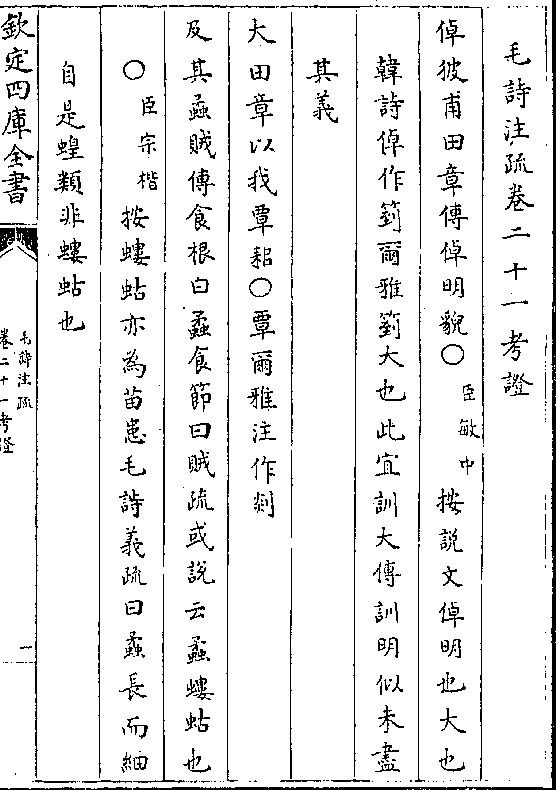 毛詩注疏卷二十一考證
倬彼甫田章傳倬明貌○臣敏中按説文倬明也大也
韓詩倬作箌爾雅箌大也此宜訓大傳訓明似未盡
其義
大田章以我覃耜○覃爾雅注作剡
及其蟊賊傳食根曰蟊食節曰賊疏或説云蟊螻蛄也
○臣宗楷按螻蛄亦為苗患毛詩義疏曰蟊長而細
自是蝗類非螻蛄也
欽定四庫全書
毛詩注疏
卷二十一考證
一